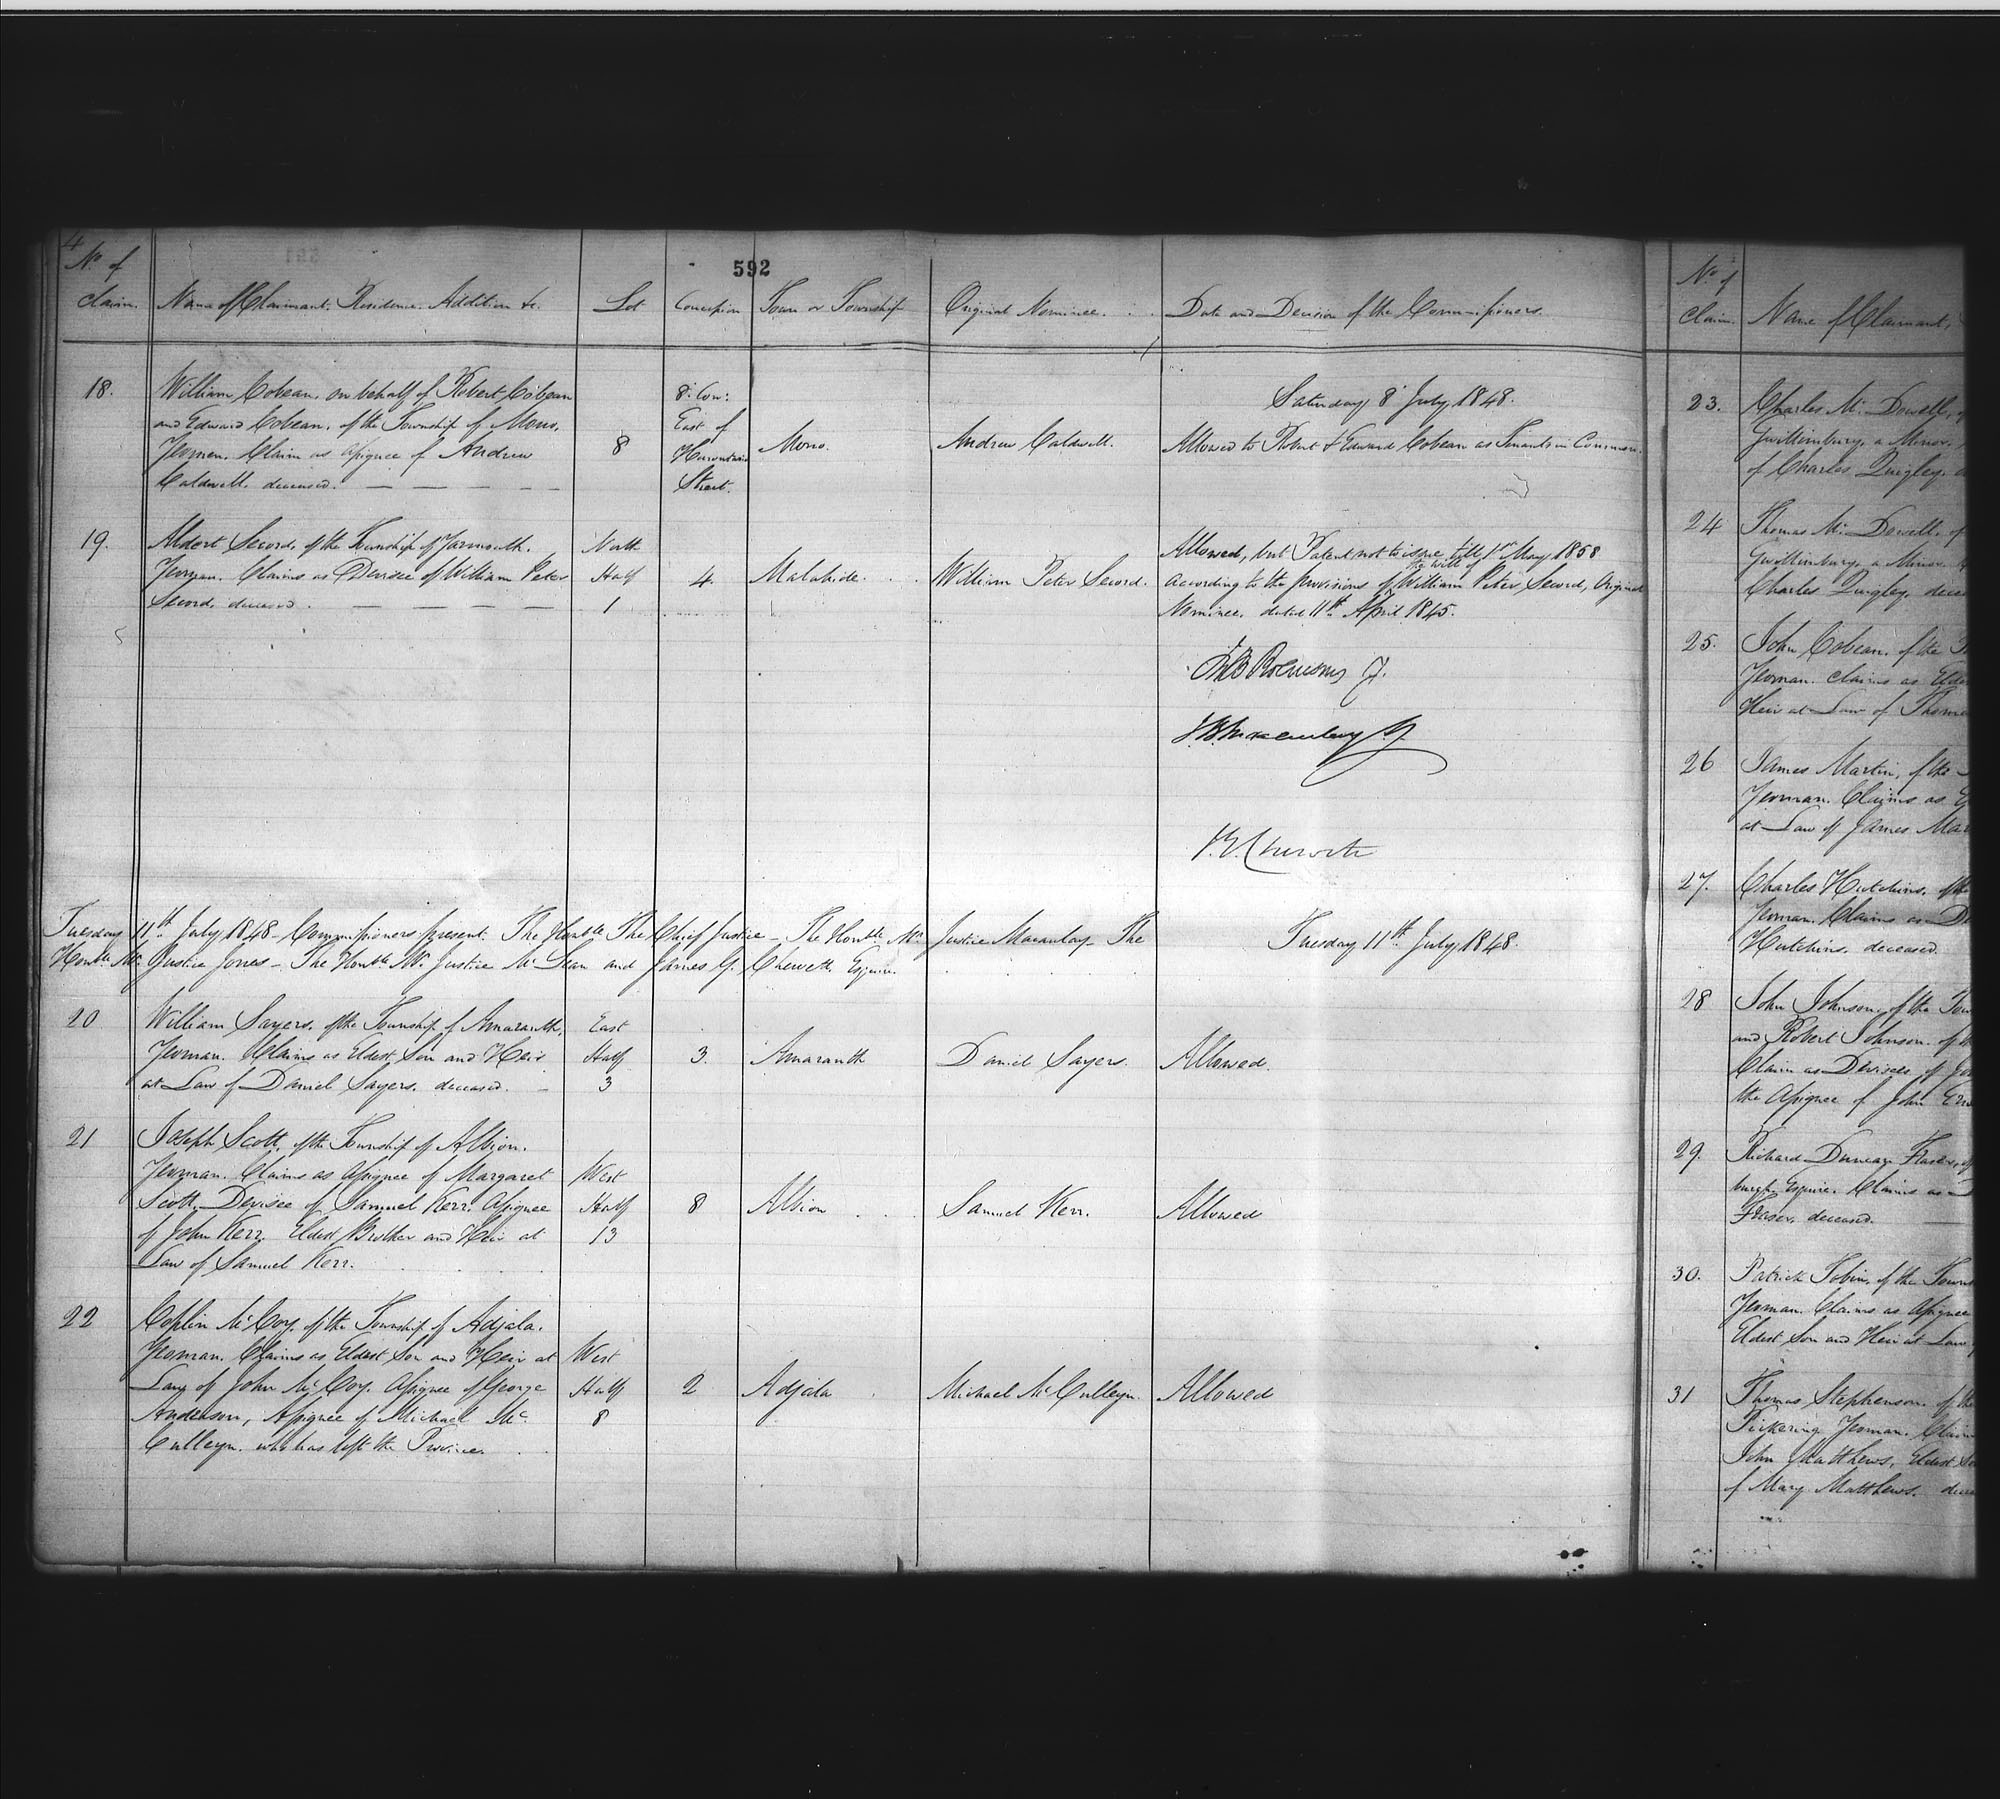 4
592
No. of
Claim. Name of Claimant. Residence. Addition &c. Lot Concession Town or Township Original Nominee. Date and Decision of the Commissioners.
Saturday 8 July 1848.
18. William Cobean, on behalf of Robert Cobean
and Edward Cobean, of the Township of Mono,
Yeomen. Claim as Assignee of Andrew
Caldwell. deceased.
8
8 Con:
East of
Hurontario
Street.
Mono.
Andrew Caldwell.
Allowed to Robert & Edward Cobean as Tenants in Common.
19. Aldert Secord, of the Township of Yarmouth.
Yeoman. Claims as Devisee of William Peter
Secord, deceased.
North
Half
1
4.
Malahide.
William Peter Secord.
Allowed, but Patent not to issue till 1st May 1858
according to the provisions of the will of William Peter Secord, Original
Nominee, dated 11th April 1845.
Jno B Robinson CJ.
J B Macaulay J.
J. G. Chewett
Tuesday 11th July 1848 - Commissioners present. The Honble The Chief Justice - The Honble Mr Justice Macaulay - The
Honble Mr Justice Jones - The Honble Mr Justice McLean and James G. Chewett, Esquire.
Tuesday 11th July 1848.
20 William Sayers, of the Township of Amaranth,
Yeoman. Claims as Eldest Son and Heir
at Law of Daniel Sayers. deceased.
East
Half
3
3.
Amaranth
Daniel Sayers.
Allowed.
21 Joseph Scott, of the Township of Albion.
Yeoman. Claims as Assignee of Margaret
Scott, Devisee of Samuel Kerr. Assignee
of John Kerr. Eldest Brother and Heir at
Law of Samuel Kerr.
West
Half
13
8
Albion
Samuel Kerr.
Allowed
22 Coplin McCoy. of the Township of Adjala.
Yeoman. Claims as Eldest Son and Heir at
Law of John McCoy. Assignee of George
Anderson, Assignee of Michael Mc
Culleyn. who has left the Province.
West
Half
8
2
Adjala
Michael McCulleyn.
Allowed
No. of
Claim. Name of Claimant,
23. Charles Mc Dowell,
Gwillimbury, a Minor,
of Charles Quigley,
24 Thomas Mc Dowell, of
Gwillimbury, a Minor,
Charles Quigley, dece
25. John Cobean, of the
Yeoman. Claims as Elde
Heir at Law of Thoma
26 James Martin, of the
Yeoman. Claims as E
at Law of James Mar
27. Charles Hutchins, of the
Yeoman. Claims as De
Hutchins, deceased.
28 John Johnson, of the Tow
and Robert Johnson, of
Claim as Devisees of Jo
the Assignee of John
29. Richard Duncan Fraser, of
burgh, Esquire. Claims as
Fraser, deceased.
30. Patrick Tobin, of the Town
Yeoman. Claims as Assignee
Eldest Son and Heir at Law
31 Thomas Stephenson, of the
Pickering Yeoman. Claim
John Matthews, Eldest So
of Mary Matthews. dece